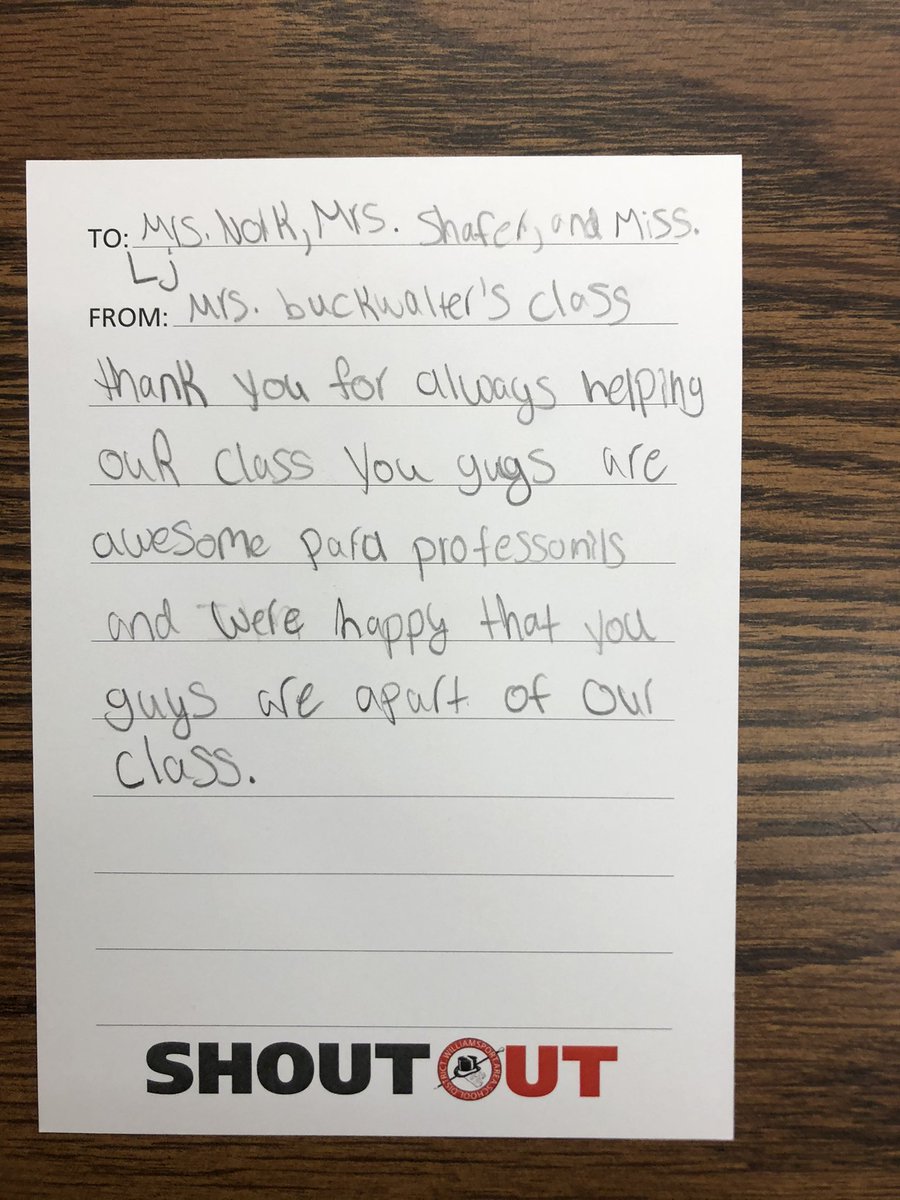 TO: Mrs. Nork, Mrs. Shafer, and Miss.
Lj
FROM: Mrs. buckwalter's class
thank you for always helping
ouR class you guys are
awesome para professonils
and were happy that you
guys are apart of our
class.
SHOUTOUT
WILLIAMSPORT AREA SCHOOL DISTRICT